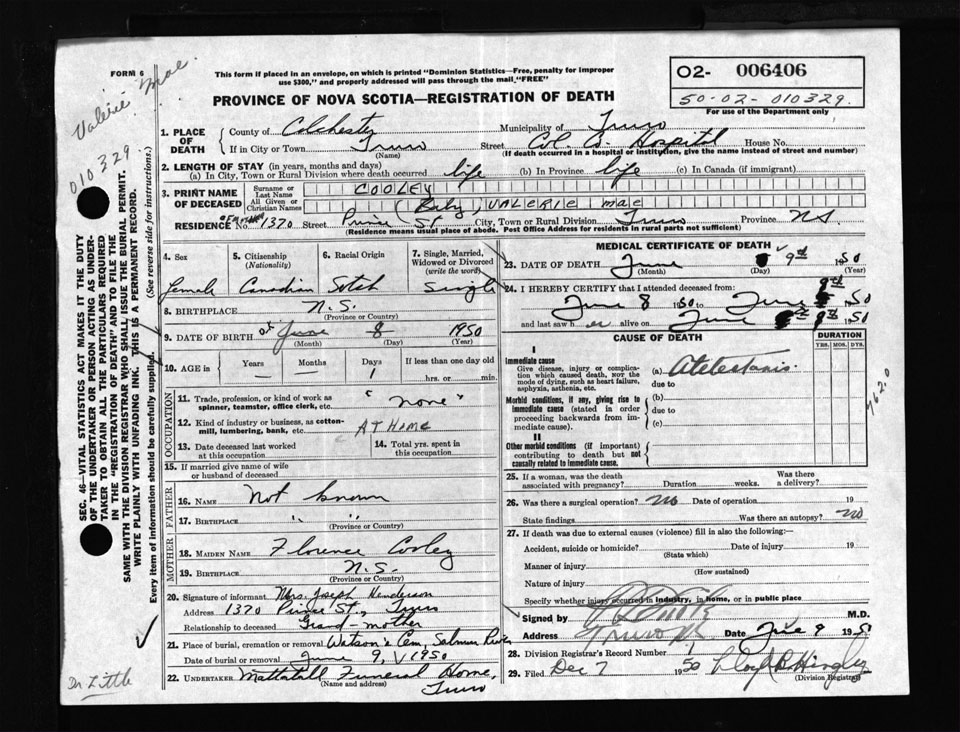 FORM 6
This form if placed in an envelope, on which is printed "Dominion Statistics—Free, penalty for improper
use $300," and properly addressed will pass through the mail "FREE"
PROVINCE OF NOVA SCOTIA—REGISTRATION OF DEATH
O2- 006406
50-02-010329.
For use of the Department only
Valerie Mae.
010329.
SEC. 46—VITAL STATISTICS ACT MAKES IT THE DUTY
OF THE UNDERTAKER OR PERSON ACTING AS UNDER-
TAKER TO OBTAIN ALL THE PARTICULARS REQUIRED
IN THE "REGISTRATION OF DEATH" AND TO FILE THE
SAME WITH THE DIVISION REGISTRAR WHO SHALL ISSUE THE BURIAL PERMIT.
WRITE PLAINLY WITH UNFADING INK. THIS IS A PERMANENT RECORD.
Every item of information should be carefully supplied. (See reverse side for instructions.)
1. PLACE OF DEATH
County of Colchester Municipality of Truro
If in City or Town Truro Street Col. Co. Hospital House No.
(Name) (If death occurred in a hospital or institution, give the name instead of street and number)
2. LENGTH OF STAY (in years, months and days)
(a) In City, Town or Rural Division where death occurred life (b) In Province life (c) In Canada (if immigrant)
3. PRINT NAME OF DECEASED
Surname or Last Name COOLEY
All Given or Christian Names (Baby) VALERIE MAE
RESIDENCE No. 1370 Street Prince St City, Town or Rural Division Truro Province NS
(Residence means usual place of abode. Post Office Address for residents in rural parts not sufficient)
4. Sex
female
5. Citizenship
(Nationality)
Canadian
6. Racial Origin
Scotch
7. Single, Married,
Widowed or Divorced
(write the word)
Single
8. BIRTHPLACE N.S.
(Province or County)
9. DATE OF BIRTH June 8 1950
(Month) (Day) (Year)
10. AGE in Years Months Days If less than one day old
— — 1 hrs. or min.
OCCUPATION
11. Trade, profession, or kind of work as
spinner, teamster, office clerk, etc. "none"
12. Kind of industry or business, as cotton-
mill, lumbering, bank, etc. AT HOME
13. Date deceased last worked
at this occupation
14. Total yrs. spent in
this occupation
15. If married give name of wife
or husband of deceased
FATHER
16. NAME Not known
17. BIRTHPLACE " "
(Province or Country)
MOTHER
18. MAIDEN NAME Florence Cooley
19. BIRTHPLACE N.S.
(Province or Country)
20. Signature of informant Mrs. Joseph Henderson
Address 1370 Prince St., Truro
Relationship to deceased Grand-mother
21. Place of burial, cremation or removal Watson's Cem, Salmon River
Date of burial or removal June 9, 1950
22. UNDERTAKER Mattatall Funeral Home,
(Name and address) Truro
Dr Little
MEDICAL CERTIFICATE OF DEATH
23. DATE OF DEATH June 9th 1950
(Month) (Day) (Year)
24. I HEREBY CERTIFY that I attended deceased from:
June 8 1950 to June 9th 1950
and last saw her alive on June 9th 1950
CAUSE OF DEATH
DURATION
YRS. MOS. DYS.
I
Immediate cause
Give disease, injury or complica-
tion which caused death, NOR the
mode of dying, such as heart failure,
asphyxia, asthenia, etc.
(a) Atelectasis.
due to
Morbid conditions, if any, giving rise to
immediate cause (stated in order
proceeding backwards from im-
mediate cause).
(b)
due to
(c)
II
Other morbid conditions (if important)
contributing to death but not
causally related to immediate cause.
7620
25. If a woman, was the death
associated with pregnancy? Duration weeks. Was there
a delivery?
26. Was there a surgical operation? no Date of operation 19
State findings Was there an autopsy? no
27. If death was due to external causes (violence) fill in also the following:—
Accident, suicide or homicide? Date of injury 19
(State which)
Manner of injury
(How sustained)
Nature of injury
Specify whether injury occurred in industry, in home, or in public place
Signed by M.D.
Address Truro NS Date June 9 1950
28. Division Registrar's Record Number 1
29. Filed Dec 7 1950 Lloyd D Hingley
(Division Registrar)